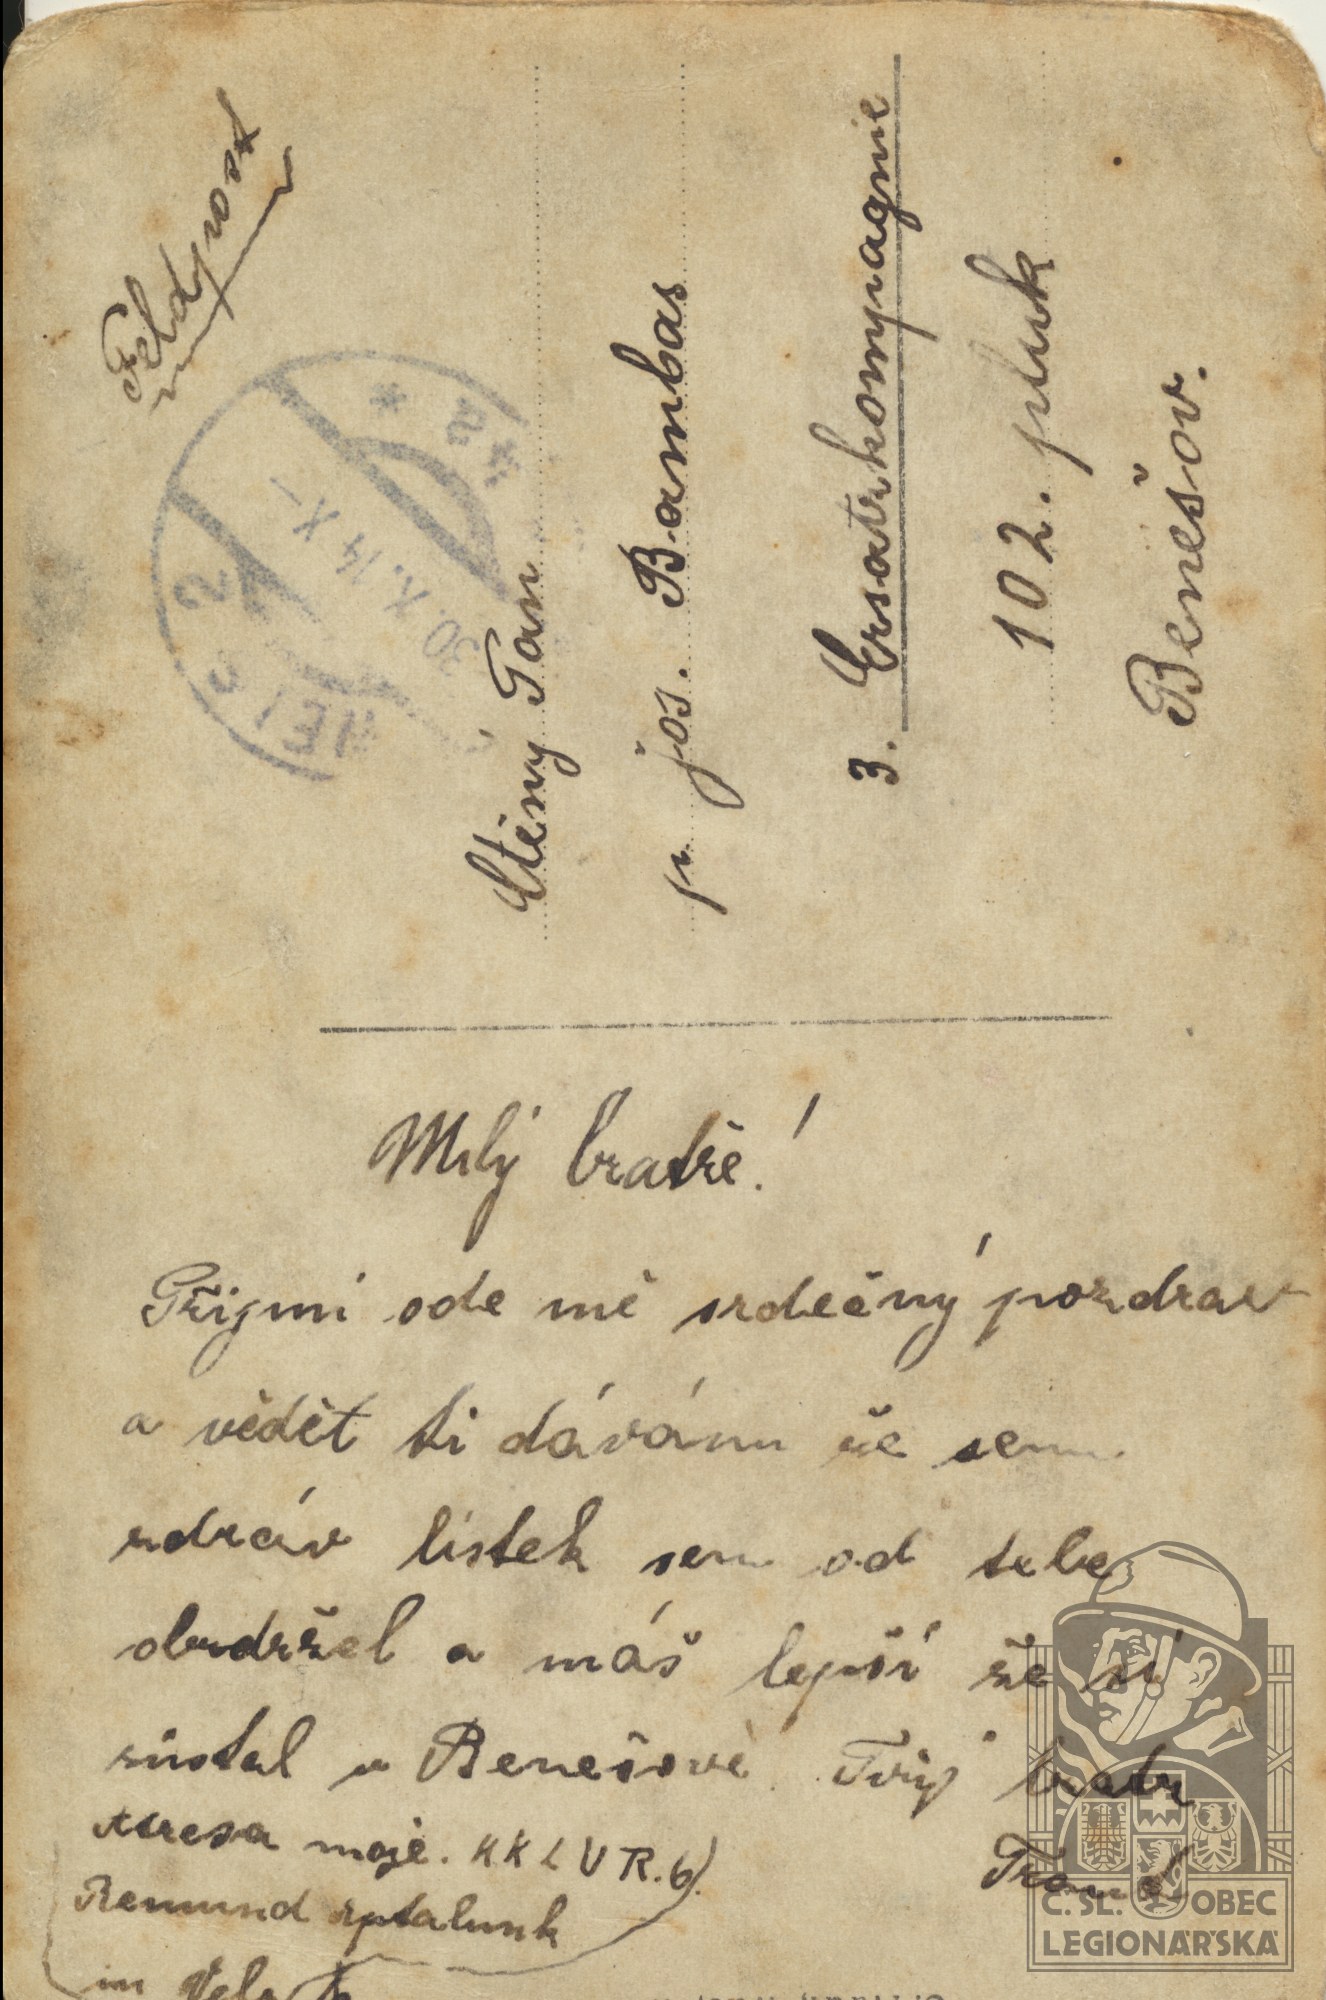 Feldpost
30.X.14 X-
Ctěný Pan
p. jos. Bambas
3. Ersatzkompagnie
102. pluk
Benešov.
Milý bratře!
Přijmi ode mě srdečný pozdrav
a vědět ti dávám že sem
zdráv lístek sem od tebe
obdržel a máš lepší že si
zůstal v Benešově Tvůj bratr
Adresa moje. K K L V R. 6).
im Felde
Č. SL. OBEC
LEGIONÁŘSKÁ